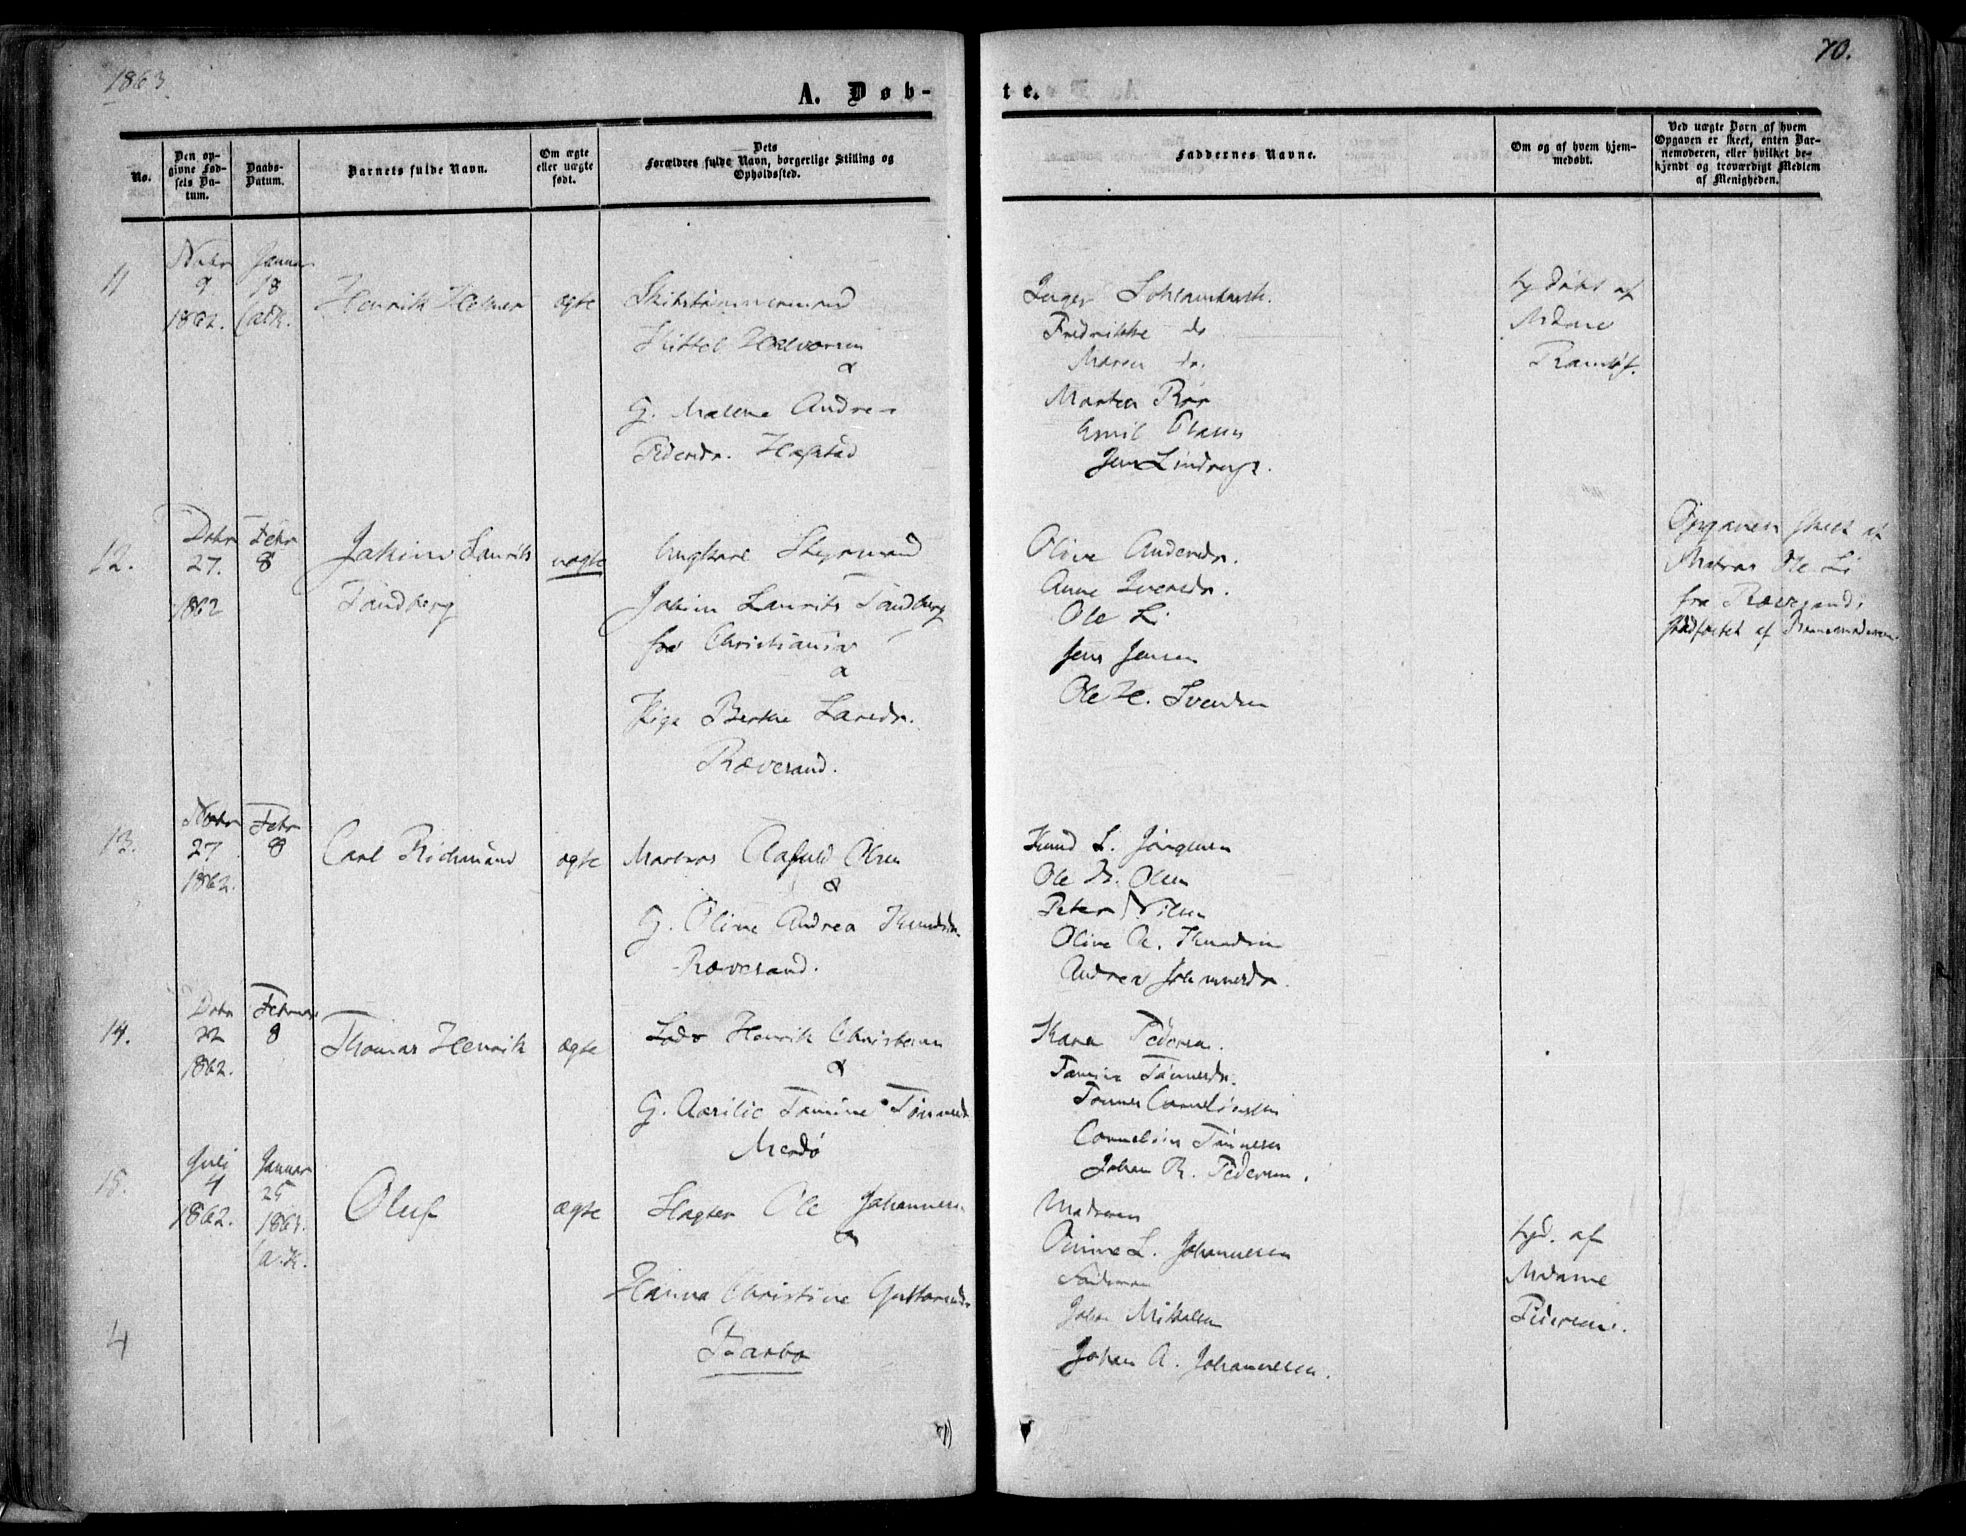 1863.
70.
A. Døb-
te.
No.
Den op-
givne Fød-
sels Da-
tum.
Daabs-
Datum.
Barnets fulde Navn.
Om ægte
eller uægte
født.
Dets
Forældres fulde Navn, borgerlige Stilling og
Opholdssted.
Faddernes Navne.
Om og af hvem hjem-
medøbt.
Ved uægte Børn af hvem
Opgaven er skeet, enten Bar-
nemoderen, eller hvilket be-
kjendt og troværdigt Medlem
af Menigheden.
11
Novbr
9
1862.
Januar
18
Henrik
ægte
Skibstømmermand
Kittel Halvorsen
&
G. Malene Andrea
Pedersdr.
Inger
Fredrikke do
Maren do.
Emil
Jens
af
Madme
12.
Decbr
27.
1862
Febr
8
Jakim Laurits
Tandberg
uægte
Ungkarl Styrmand
Jakim Laurits Tandberg
fra Christiania
&
Pige Berthe Larsdr.
Ræversand.
Olive Andersdr.
Anne Iversdr.
Ole Li
Jens Jensen
Ole H. Svendsen
Opgaven skeet af
Matros Ole Li
fraRæversand,
af Barnemoderen.
13.
Novbr
27
1862.
Febr
8
Carl Richmand
ægte
Matros Olsen
&
G. Olive Andrea Knudsdr.
Ræversand.
Knud L. Jörgensen
Ole Olsen
Peter Nilsen
Olive Knudsen
Andrea Johannesdr.
14.
Decbr
22
1862.
Februar
8
Thomas Henrik
ægte
Lods Henrik Christensen
&
G. Tomine Tönnesdr
Merdø
Karen Pedersen.
Tomine Tönnesdr.
Tönnes Corneliussen
Cornelius Tönnesen
Johan Pedersen.
15.
Juli
4
1862.
Januar
25
1863.
(a. K.
Oluf
ægte
Ole Johannesen
&
Hanna Christine Guttormsdr
Barbo
Moderen
L. Johannesen
Faderen
Johan Mikelsen
Johan A. Johannesen.
hjd. af
Madame
Pedersen.
4